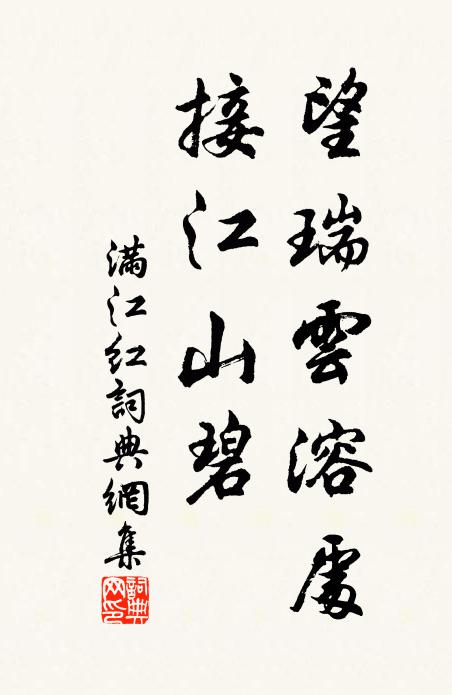 望瑞雲溶處
接江山碧
滿江紅詞典網集
詞典
网印